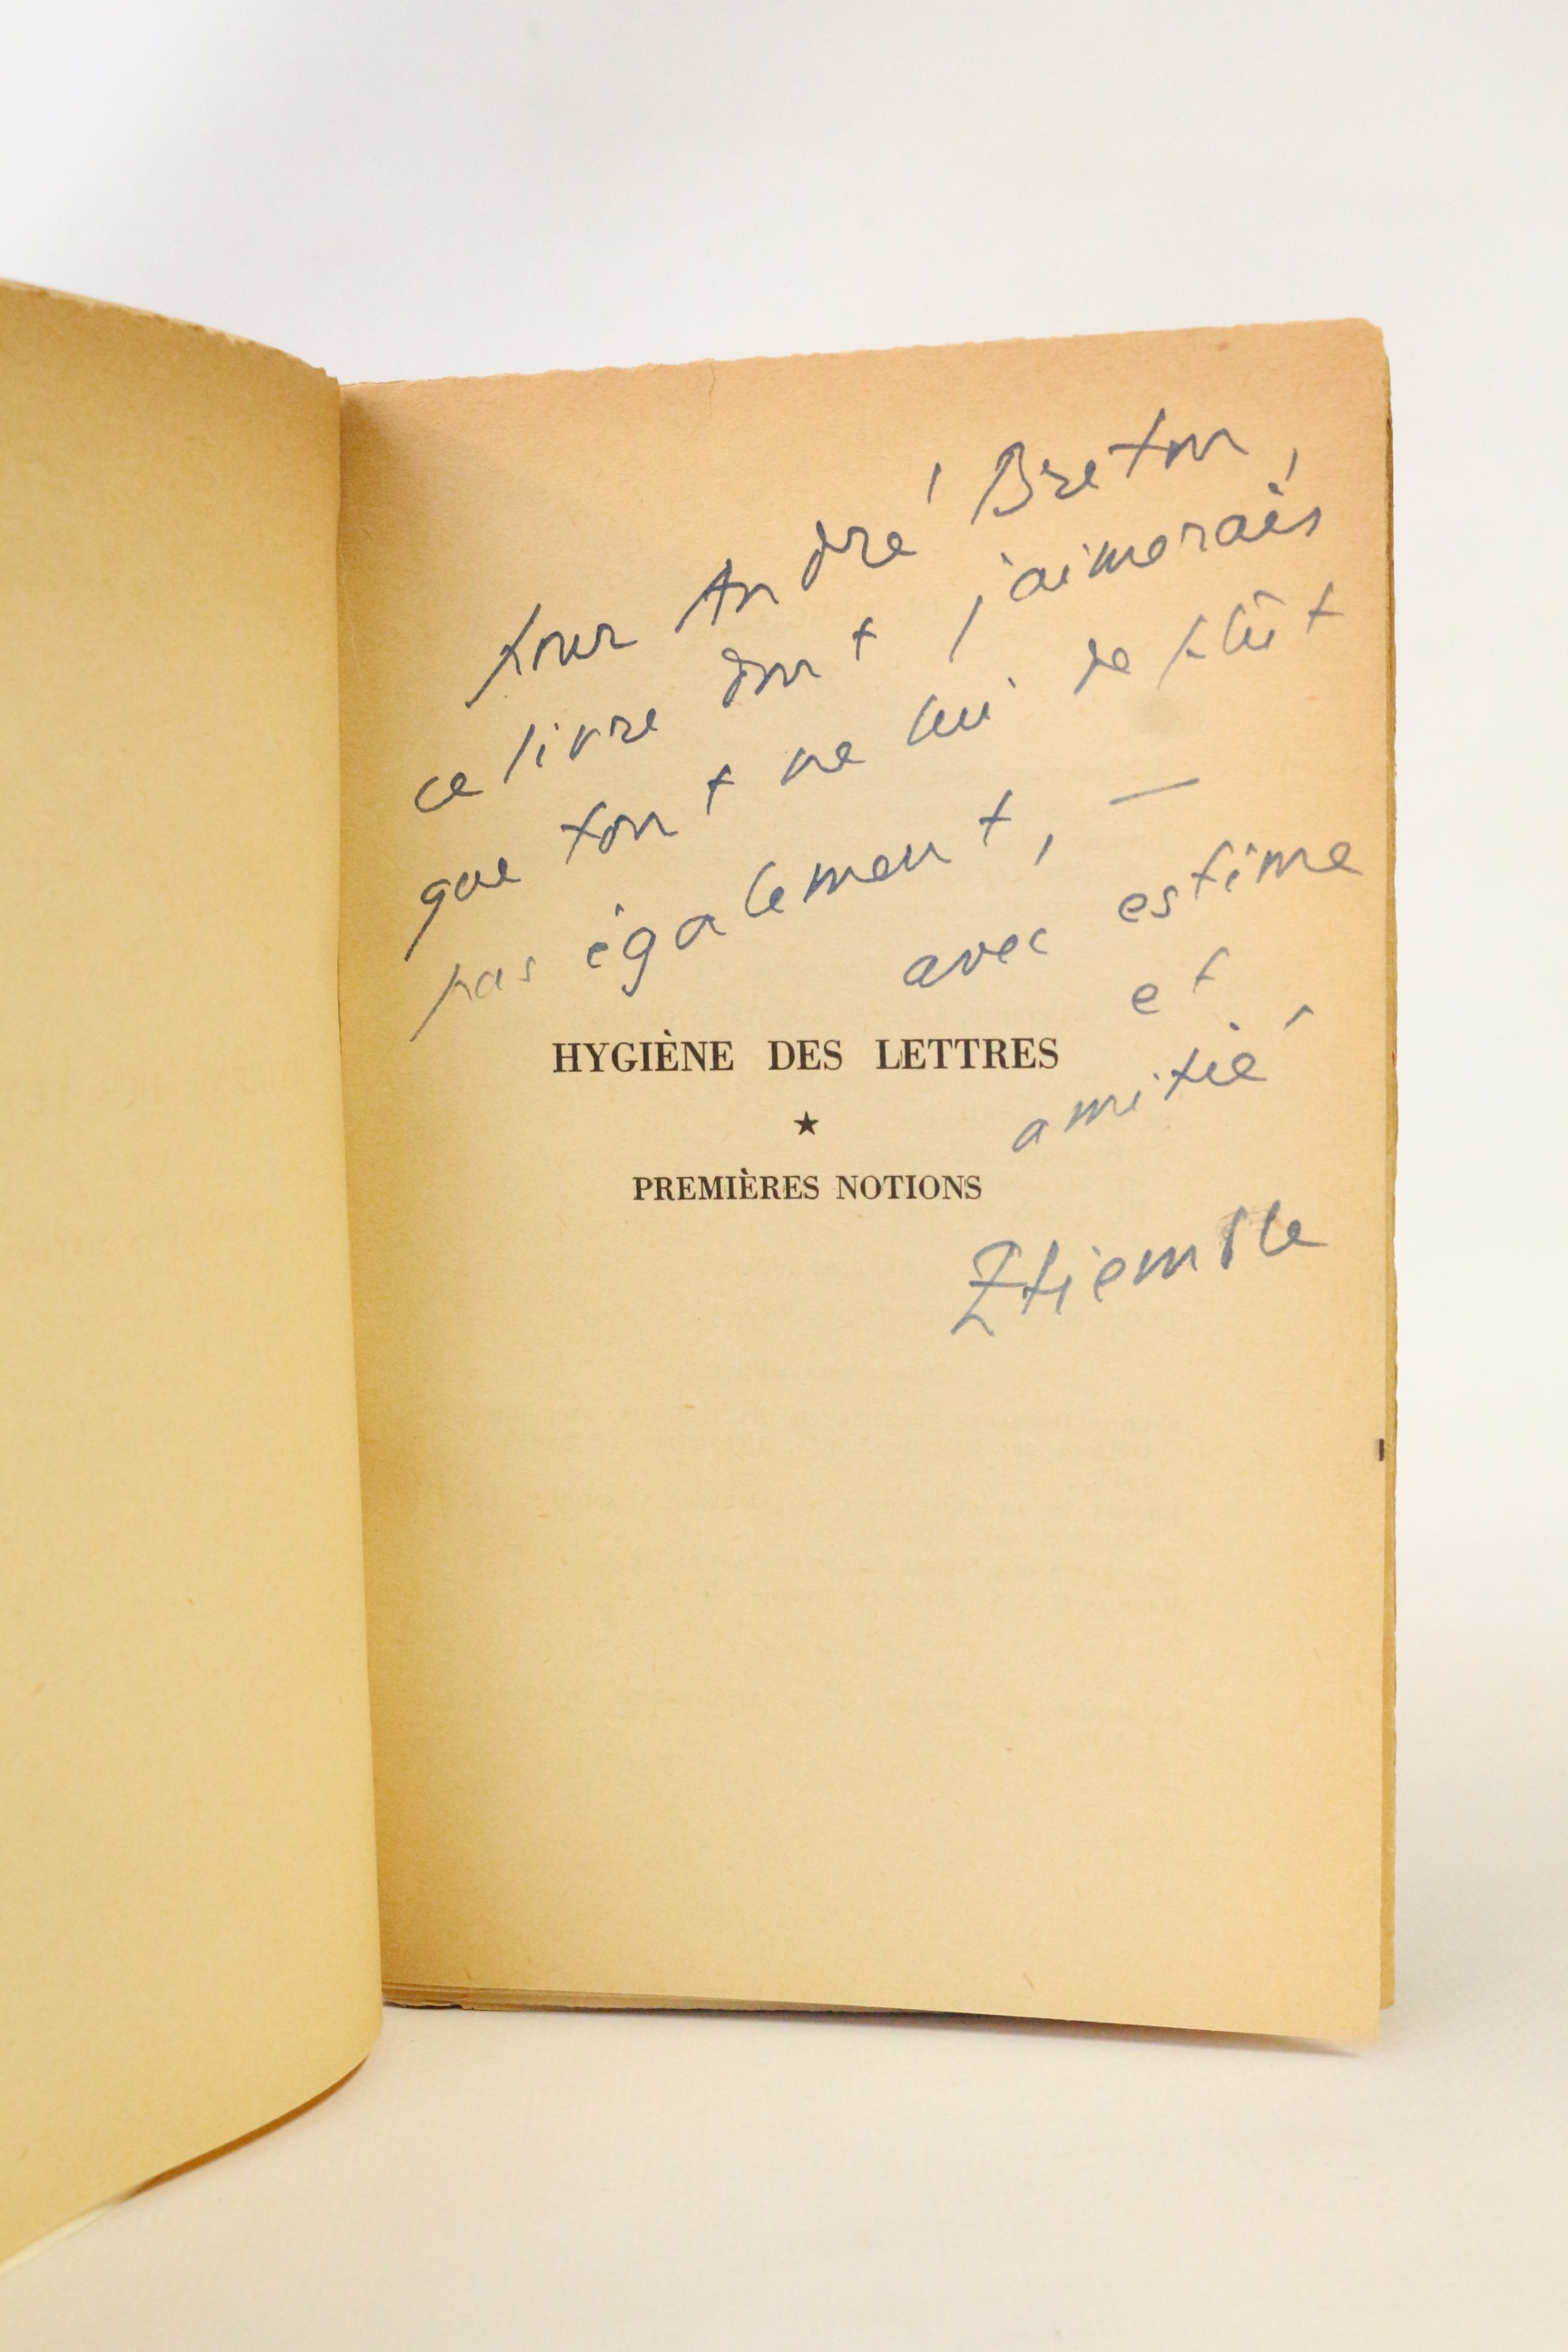 Pour André Breton,
ce livre dont j'aimerais
que tout ne lui déplût
pas également, —
avec estime
et
amitié
HYGIÈNE DES LETTRES
★
PREMIÈRES NOTIONS
Etiemble